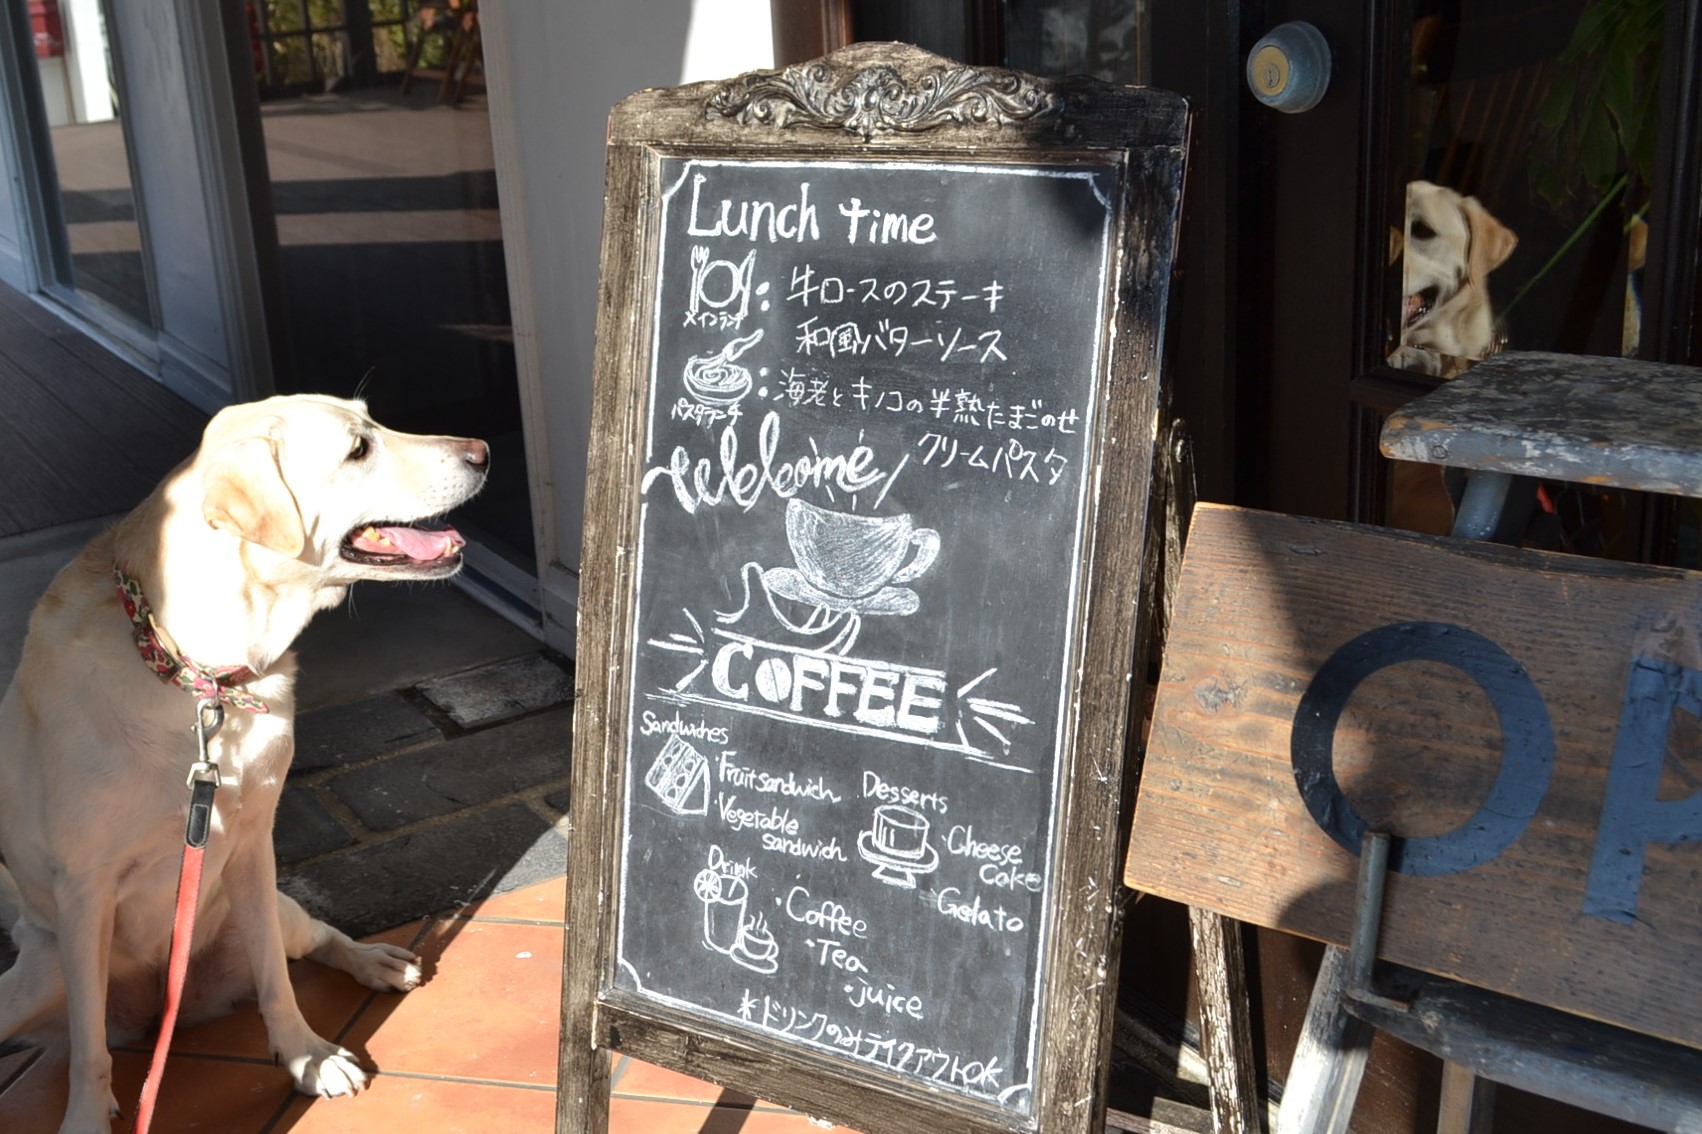 Lunch time
メインランチ
: 牛ロースのステーキ
和風バターソース
パスタランチ
: 海老とキノコの半熟たまごのせ
クリームパスタ
Welcome
COFFEE
Sandwiches
・Fruit sandwich
・Vegetable
sandwich
Desserts
・Cheese
Cake
・Gelato
Drink
・Coffee
・Tea
・juice
＊ドリンクのみテイクアウトOK
OP